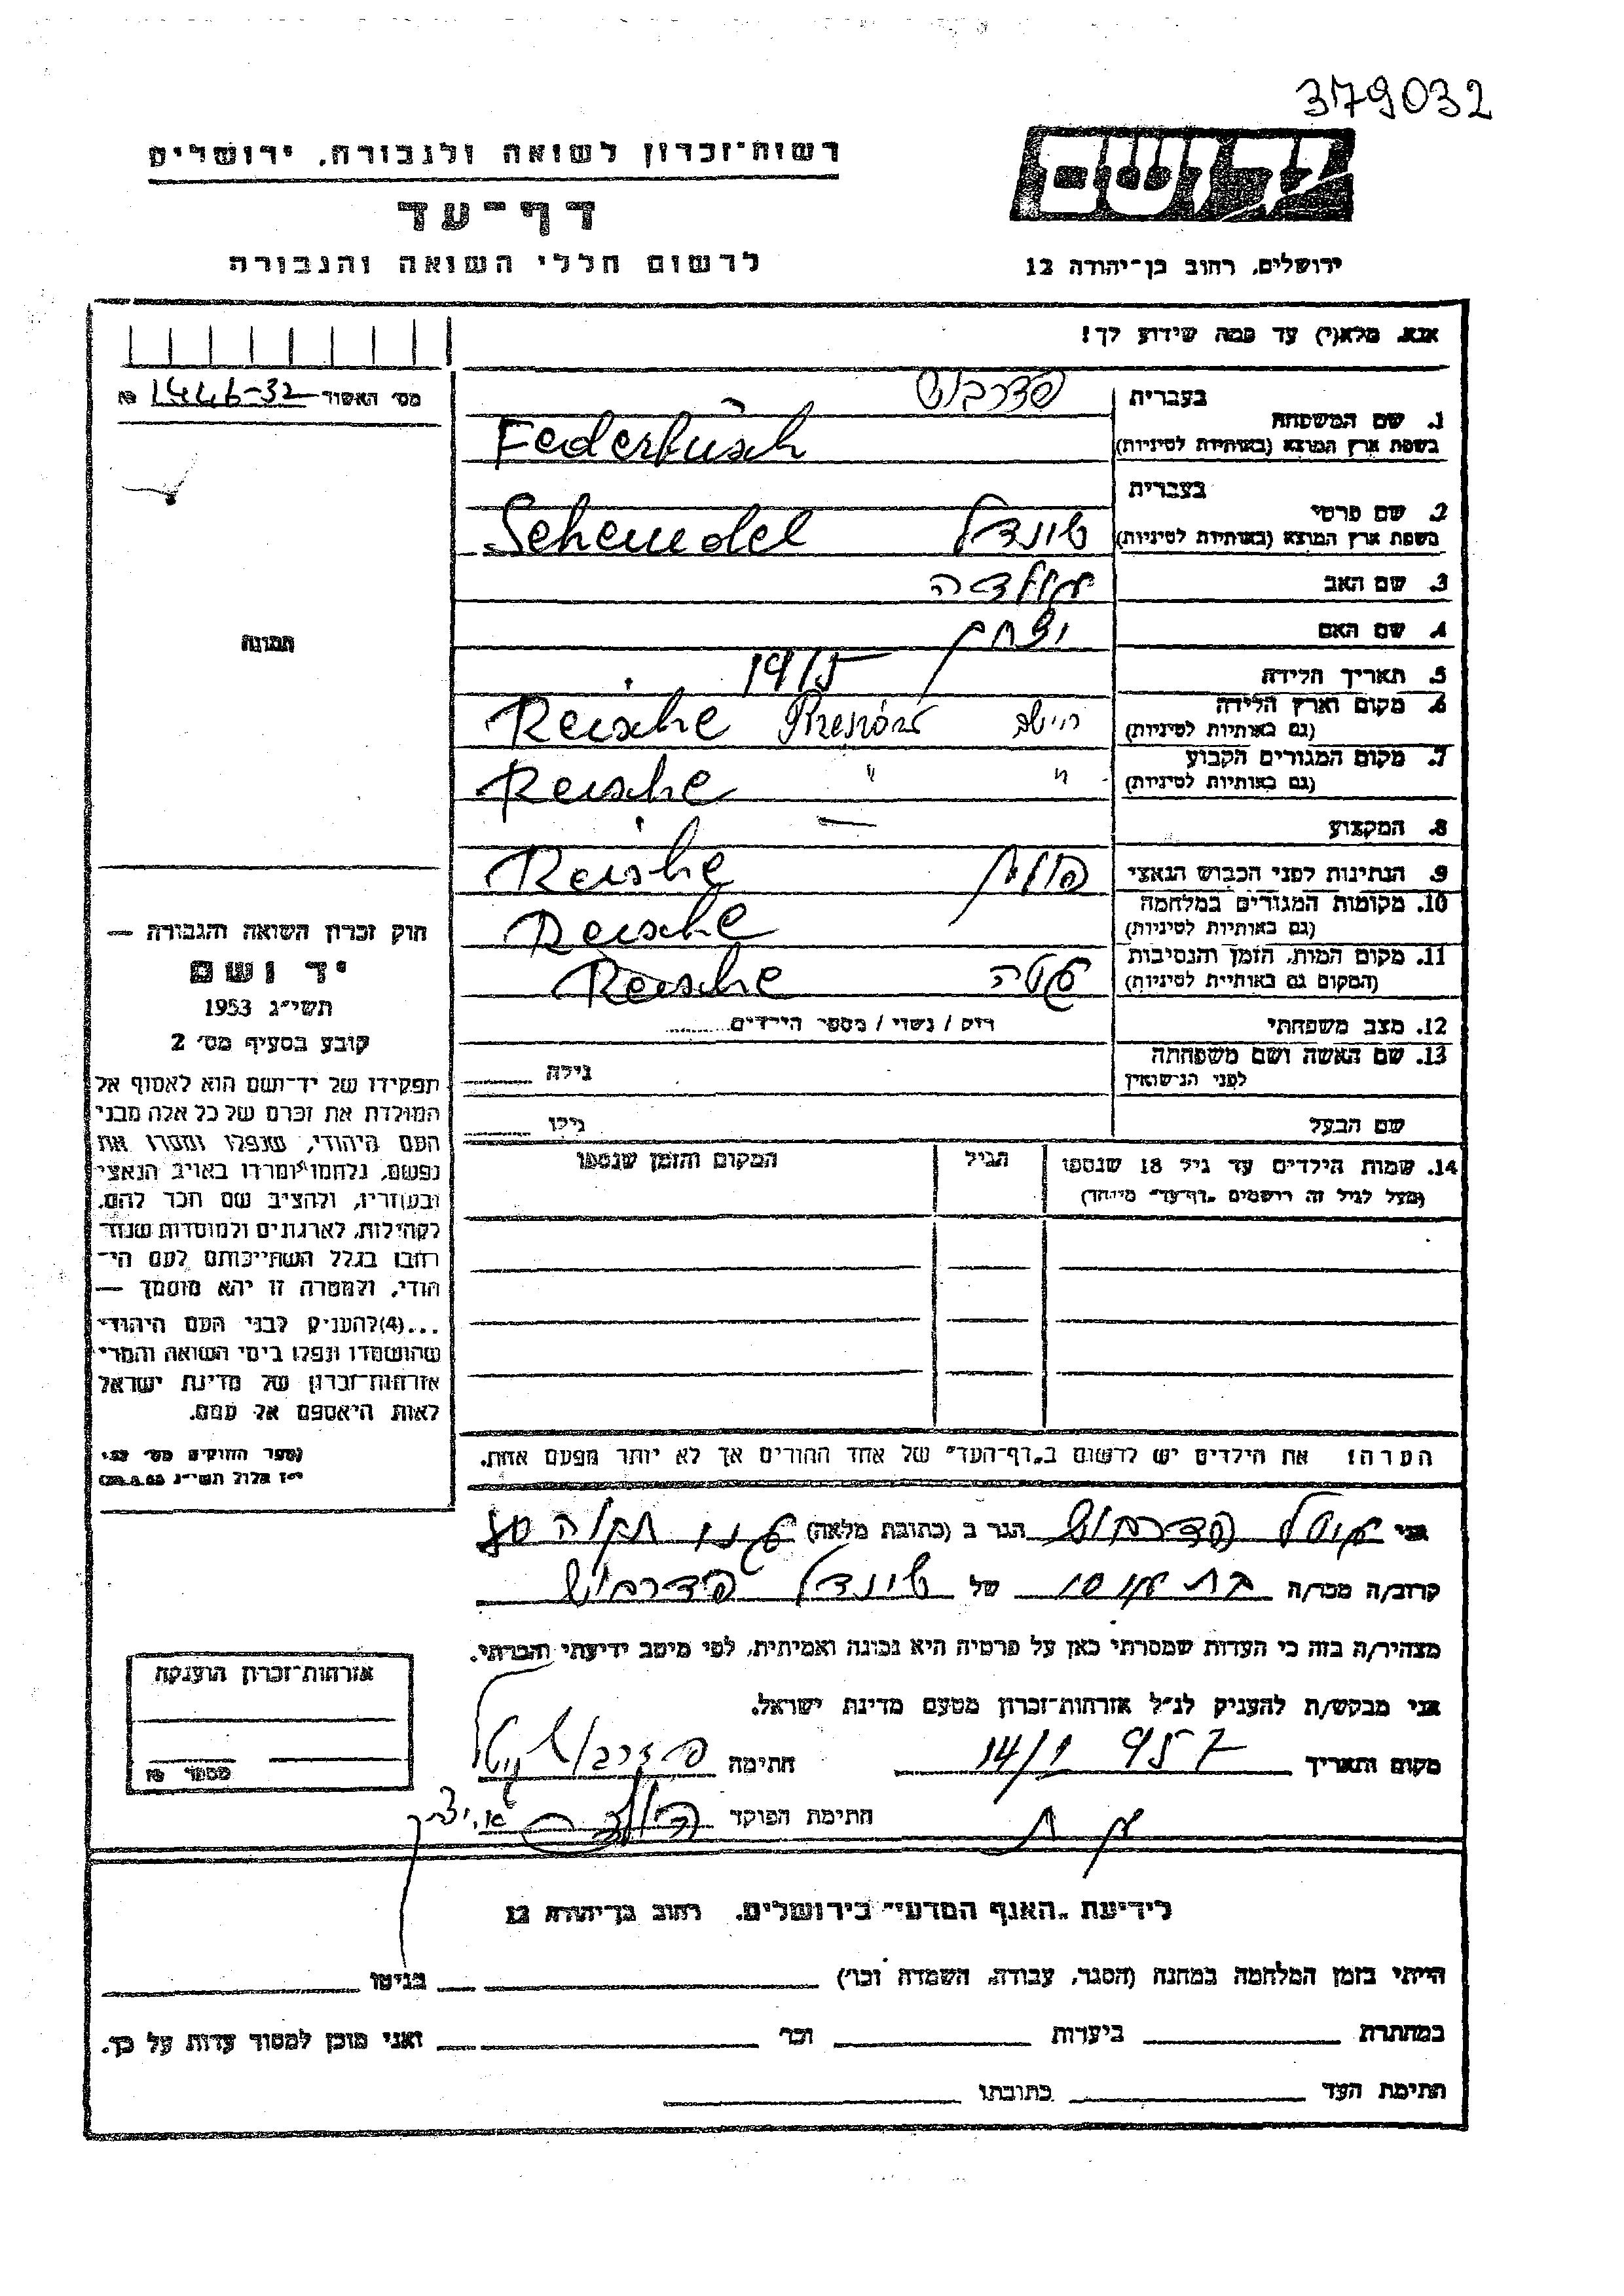 379032
יד ושם
רשות־זכרון לשואה ולגבורה, ירושלים
דף־עד
ירושלים, רחוב בן־יהודה 12
לרשום חללי השואה והגבורה
אנא, מלא(י) עד כמה שידוע לך!
מס' האשור 1446-32 №
1. שם המשפחה בעברית פדרבוש
בשפת ארץ המוצא (באותיות לטיניות) Federbusch
2. שם פרטי בעברית
בשפת ארץ המוצא (באותיות לטיניות) שינדל Scheindel
3. שם האב
4. שם האם
5. תאריך הלידה 1915
6. מקום וארץ הלידה
(גם באותיות לטיניות) Reische
7. מקום המגורים הקבוע
(גם באותיות לטיניות) " " Reische
8. המקצוע —
9. הנתינות לפני הכבוש הנאצי Reishe
10. מקומות המגורים במלחמה
(גם באותיות לטיניות) Reische
11. מקום המות, הזמן והנסיבות
(המקום גם באותיות לטיניות) Reische
12. מצב משפחתי רוק / נשוי / מספר הילדים
13. שם האשה ושם משפחתה
לפני הנישואין גילה
שם הבעל גילו
14. שמות הילדים עד גיל 18 שנספו הגיל המקום והזמן שנספו
(מעל לגיל זה רושמים „דף־עד" מיוחד)
הערה! את הילדים יש לרשום ב„דף־העד" של אחד ההורים אך לא יותר מפעם אחת.
תמונה
חוק זכרון השואה והגבורה —
יד ושם
תשי״ג 1953
קובע בסעיף מס' 2
תפקידו של יד־ושם הוא לאסוף אל
המולדת את זכרם של כל אלה מבני
העם היהודי, שנפלו ומסרו את
נפשם, נלחמו ומרדו באויב הנאצי
ובעוזריו, ולהציב שם וזכר להם,
לקהילות, לארגונים ולמוסדות שנח־
רבו בגלל השתייכותם לעם הי־
הודי, ולמטרה זו יהא מוסמך —
...(4) להעניק לבני העם היהודי
שהושמדו ונפלו בימי השואה והמרי
אזרחות־זכרון של מדינת ישראל
לאות היאספם אל עמם.
(ספר החוקים מס' 132,
י״ז אלול תשי״ג 28.8.53)
אני פדרבוש הגר ב (כתובת מלאה)
קרוב/ה מכר/ה של שינדל פדרבוש
מצהיר/ה בזה כי העדות שמסרתי כאן על פרטיה היא נכונה ואמיתית, לפי מיטב ידיעתי והכרתי.
אני מבקש/ת להעניק לנ״ל אזרחות־זכרון מטעם מדינת ישראל.
מקום ותאריך 14/1 957 חתימה
חתימת הפוקד
אזרחות־זכרון הוענקה
מספר №
לידיעת „האגף המדעי" בירושלים, רחוב בן־יהודה 12
הייתי בזמן המלחמה במחנה (הסגר, עבודה, השמדה וכו') בגיטו
במחתרת ביערות וכו' ואני מוכן למסור עדות על כך.
חתימת העד כתובתו